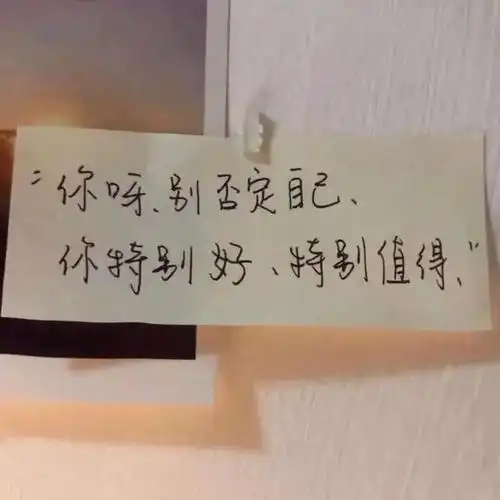 “你呀、别否定自己、
你特别好、特别值得、”